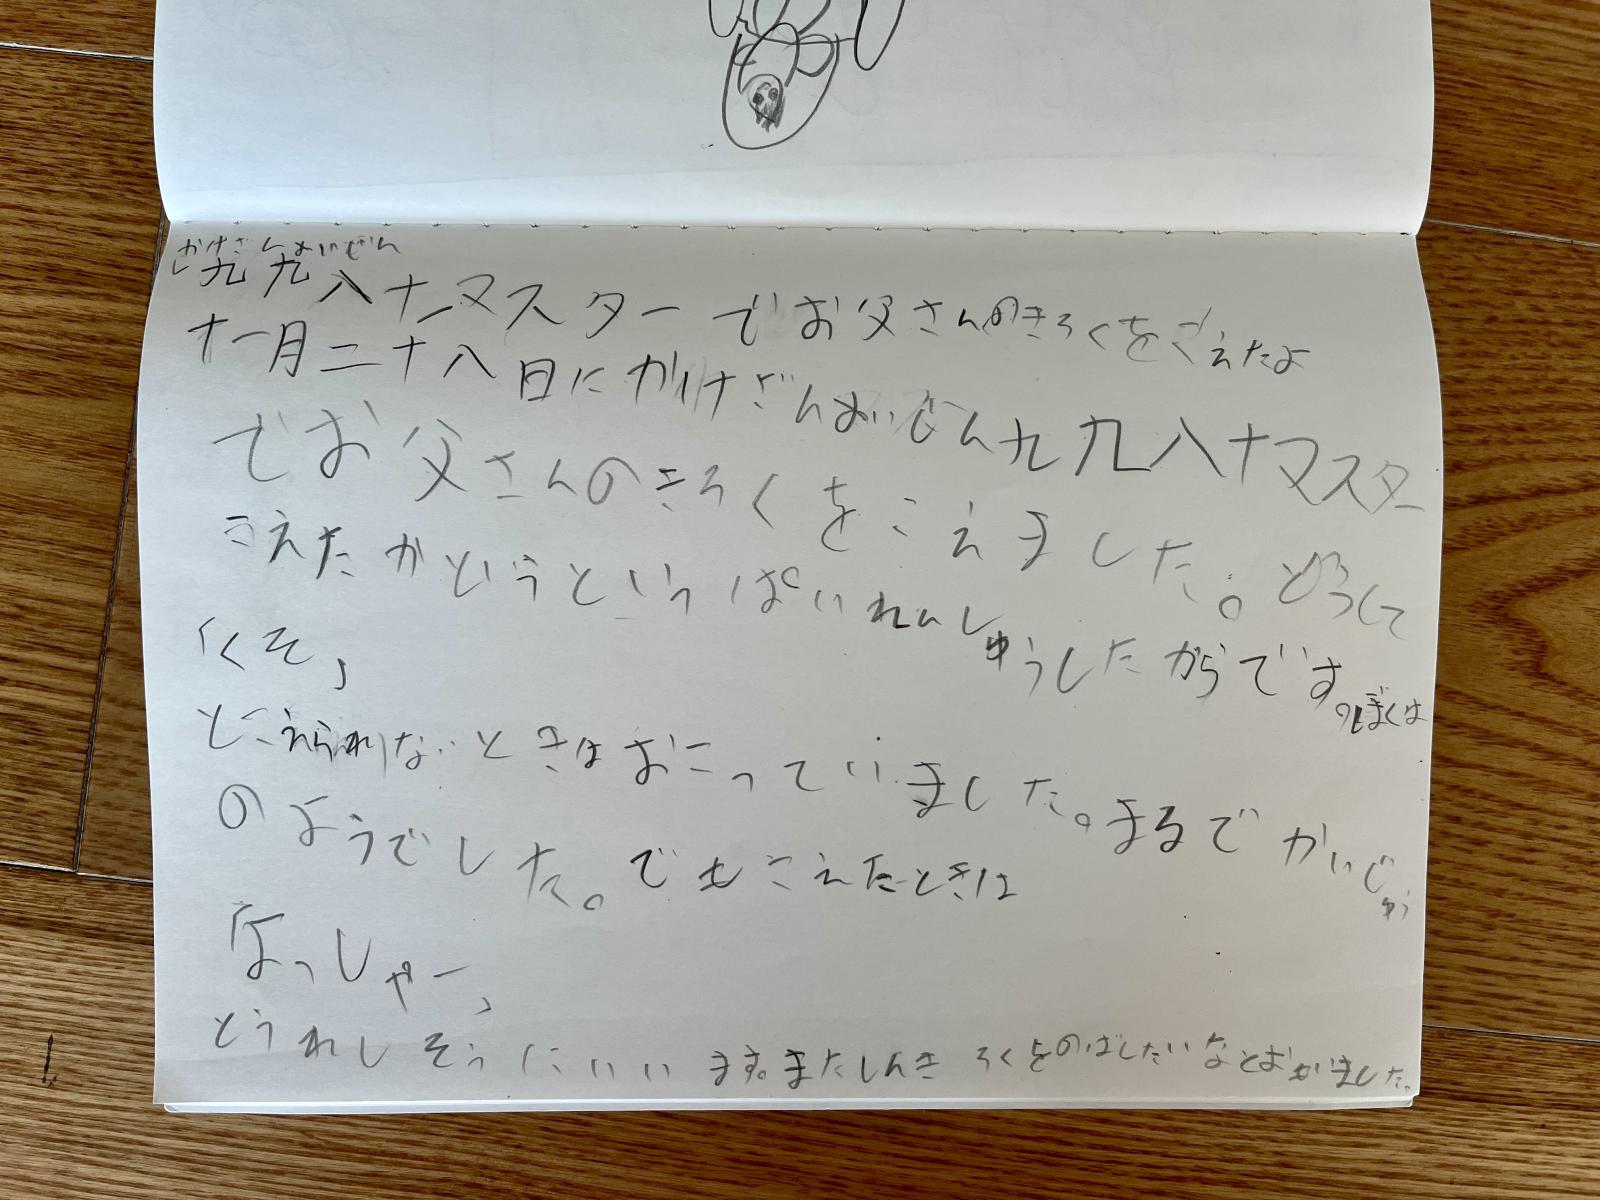 かけざんあいぜん
九九八十マスターでお父さんのきろくをこえたよ
十一月二十八日にかけざんあいぜん九九八十マスター
でお父さんのきろくをこえました。どうして
こえたかというといっぱいれんしゅうしたからです。ぼくは
「くそ」
とこえられないときはおこっていました。まるでかいじゅう
のようでした。でもこえたときは
「よっしゃー」
とうれしそうにいいます。またしんきろくをのばしたいなとおもいました。